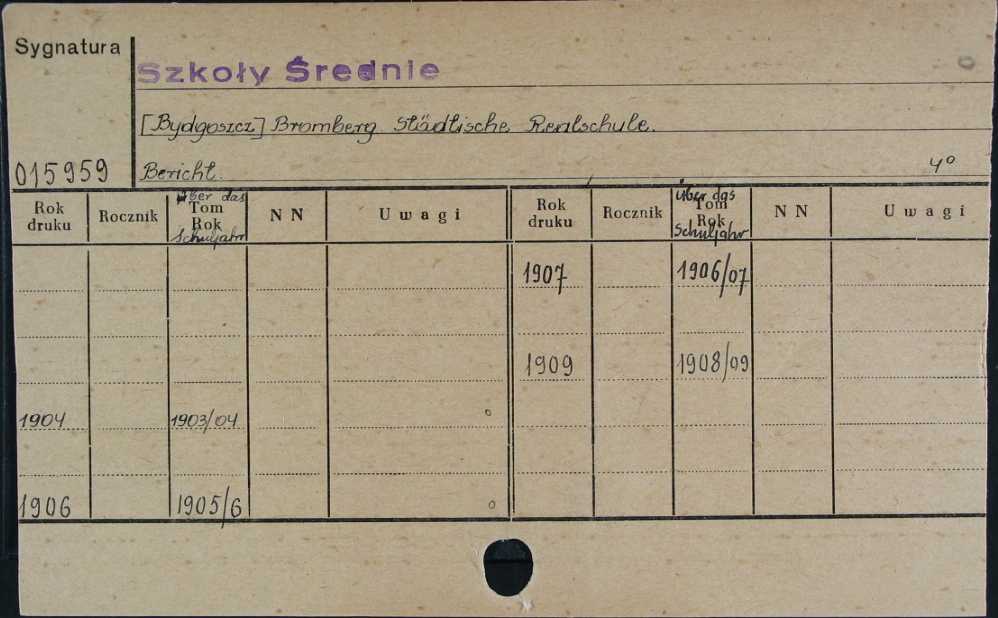 Sygnatura
Szkoły Średnie
[Bydgoszcz] Bromberg Städtische Realschule.
015959 Bericht. 4°
Rok druku Rocznik über das Tom Rok Schuljahr NN Uwagi Rok druku Rocznik über das Tom Rok Schuljahr NN Uwagi
1907 1906/07
1909 1908/09
1904 1903/04
1906 1905/6